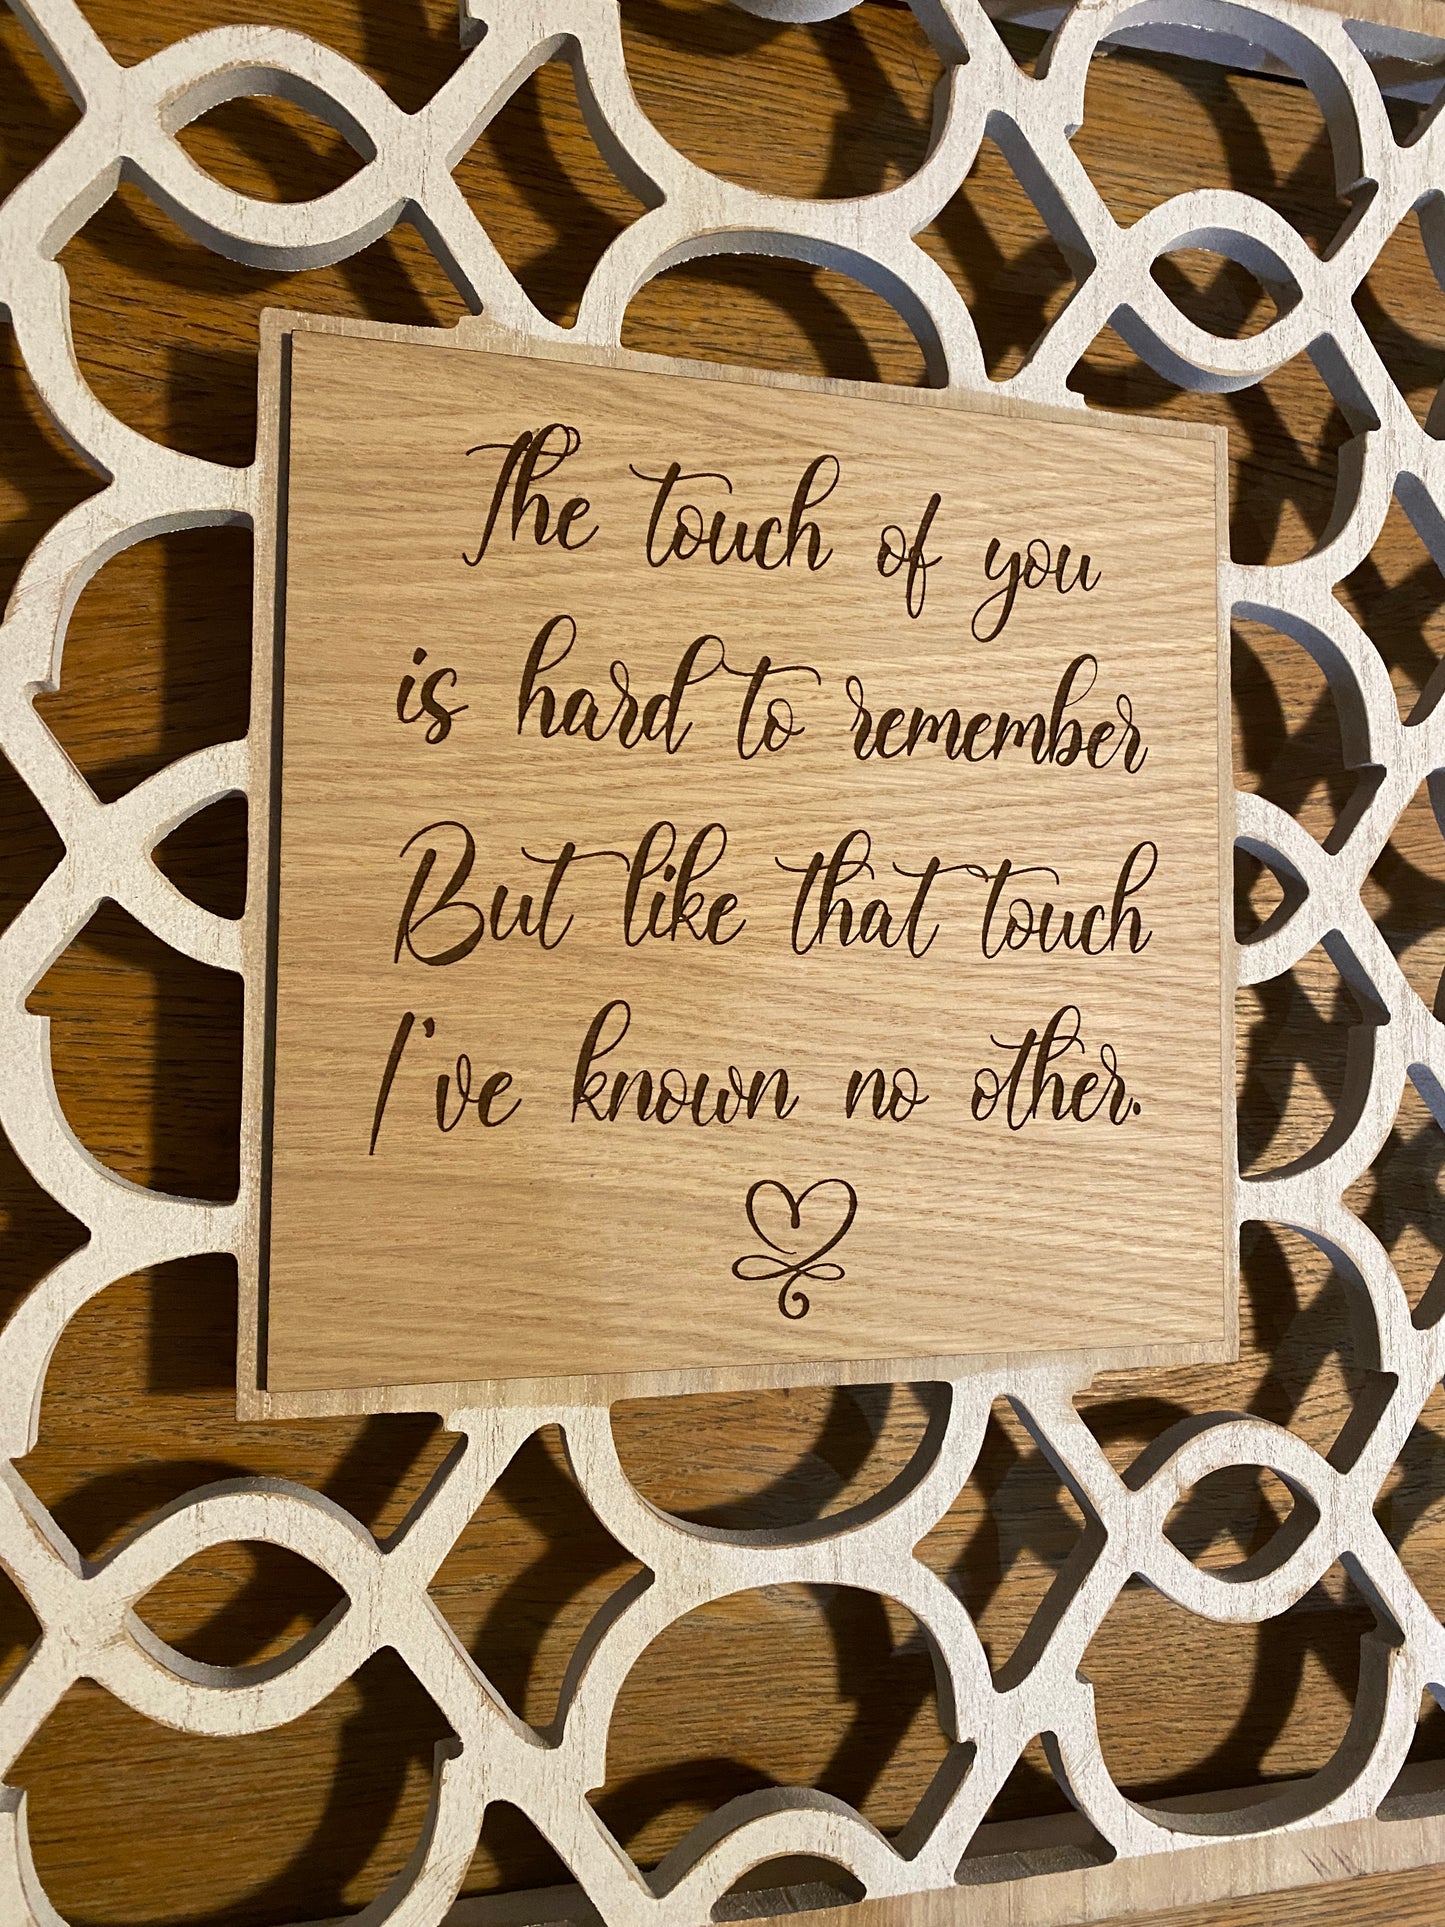 The touch of you
is hard to remember
But like that touch
I've known no other.